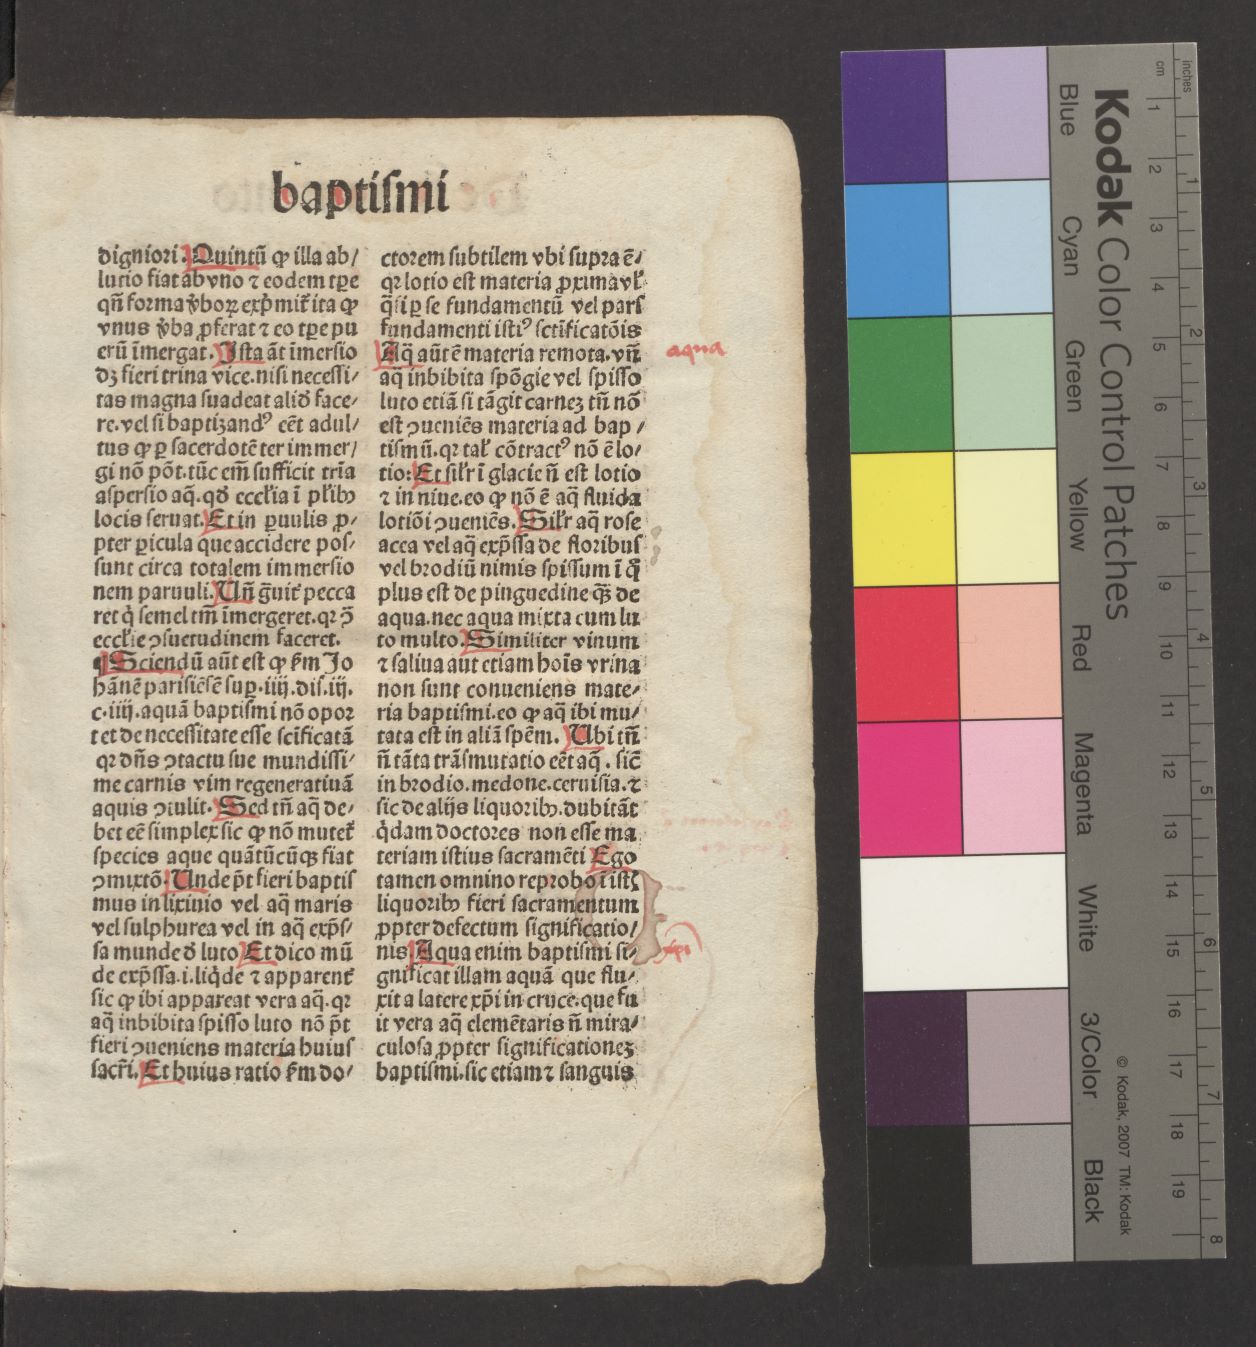 baptiſmi
digniori. Quintū ꝙ illa ab/
lutio fiat ab vno ⁊ eodem tꝑe
qñ forma v̄boꝝ exp̄mit̄ ita ꝙ
vnus v̄ba ꝓferat ⁊ eo tꝑe pu
erū īmergat. Iſta āt īmerſio
dꝫ fieri trina vice. niſi neceſſi/
tas magna ſuadeat aliđ face/
re. vel ſi baptizandꝰ eēt adul/
tus ꝙ ꝑ ſacerdotē ter immer/
gi nō pōt. tūc em̄ ſufficit trīa
aſperſio aq̄. qđ eccl̄ia ī pl̄ibꝫ
locis ſeruat. Et in ꝑuulis ꝓ/
pter ꝑicula que accidere poſ/
ſunt circa totalem immerſio
nem paruuli. Un̄ ḡuit̄ pecca
ret q̇ ſemel tm̄ īmergeret. qꝛ ꝯ̄
eccl̄ie ꝯſuetudinem faceret.
¶ Sciendū aūt eſt ꝙ ẜm Jo
hānē pariſiēſē ſuꝑ. iiij. diſ. iij.
c. iiij. aquā baptiſmi nō opor
tet de neceſſitate eſſe ſcīficatā
qꝛ dn̄s ꝯtactu ſue mundiſſi/
me carnis vim regeneratiuā
aquis ꝯtulit. Sed tn̄ aq̄ de/
bet eē ſimplex ſic ꝙ nō mutet̄
ſpecies aque quātūcūqꝫ fiat
ꝯmixtō. Unde p̄t fieri baptiſ
mus in lixiuio vel aq̄ maris
vel ſulphurea vel in aq̄ exp̄ſ/
ſa munde đ luto Et dico mū
de exp̄ſſa. i. liq̇de ⁊ apparent̄
ſic ꝙ ibi appareat vera aq̄. qꝛ
aq̄ inbibita ſpiſſo luto nō p̄t
fieri ꝯueniens materia huiuſ
ſacr̄i. Et huius ratio ẜm do/
ctorem ſubtilem vbi ſupra ē/
qꝛ lotio eſt materia ꝓxima vl̄
q̄ſi ꝑ ſe fundamentū vel parſ
fundamenti iſtiꝰ ſctīficatōis
Aq̄ aūt ē materia remota. vn̄
aq̄ inbibita ſpōgie vel ſpiſſo
luto etiā ſi tāgit carneꝫ tn̄ nō
eſt ꝯueniēs materia ad bap/
tiſmū. qꝛ tal̄ cōtractꝰ nō ē lo/
tio: Et ſil̄r ī glacie n̄ eſt lotio
⁊ in niue. eo ꝙ nō ē aq̄ fluida
lotiōi ꝯueniēs. Sil̄r aq̄ roſe
acea vel aq̄ exp̄ſſa de floribuſ
vel brodiū nimis ſpiſſum ī q̄
plus eſt de pinguedine qꝫ de
aqua. nec aqua mixta cum lu
to multo. Similiter vinum
⁊ ſaliua aut etiam hoīs vrina
non ſunt conueniens mate/
ria baptiſmi. eo ꝙ aq̄ ibi mu/
tata eſt in aliā ſpēm. Ubi tn̄
n̄ tāta trāſmutatio eēt aq̄. ſic̄
in brodio. medone. ceruiſia. ⁊
ſic de alijs liquoribꝫ. dubitāt
q̇dam doctores non eſſe ma
teriam iſtius ſacramēti Ego
tamen omnino reprobo ī iſtꝭ
liquoribꝫ fieri ſacramentum
ꝓpter defectum ſignificatio/
nis Aqua enim baptiſmi ſi/
gnificat illam aquā que flu/
xit a latere xp̄i in cruce. que fu
it vera aq̄ elemētaris n̄ mira/
culoſa ꝓpter ſignificationeꝫ
baptiſmi. ſic etiam ⁊ ſanguis
aqua
xpi
Kodak Color Control Patches
Blue Cyan Green Yellow Red Magenta White 3/Color Black
© Kodak, 2007 TM: Kodak
inches
1 2 3 4 5 6 7 8
cm
1 2 3 4 5 6 7 8 9 10 11 12 13 14 15 16 17 18 19